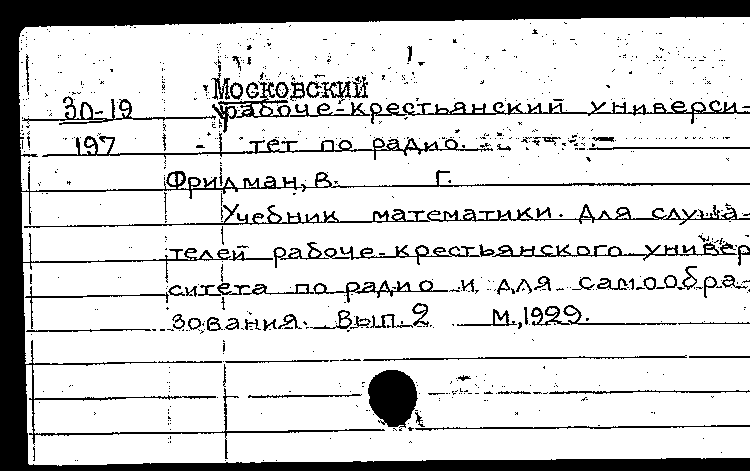 1.
Московский
30-19 рабоче-крестьянский универси-
197 - тет по радио.
Фридман, В. Г.
Учебник математики. Для слуша-
телей рабоче-крестьянского универ
ситета по радио и для самообра-
зования. Вып. 2 М., 1929.